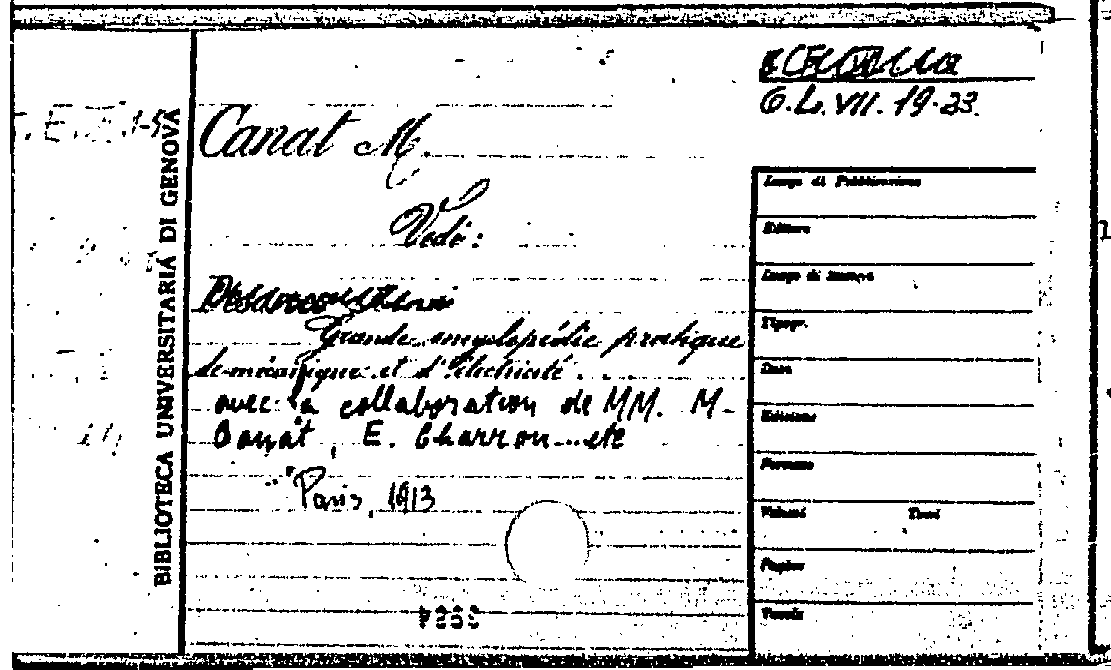 G.L.VII. 19-23.
Canat M.
Vedi:
Grande encyclopédie pratique
de mécanique et d'Électricité...
avec la collaboration de MM. M.
Canat, E. Charron...etc
Paris, 1913
BIBLIOTECA UNIVERSITARIA DI GENOVA
Luogo di Pubblicazione
Editore
Luogo di Stampa
Tipogr.
Data
Edizione
Formato
Volumi Tomi
Pagine
Tavole